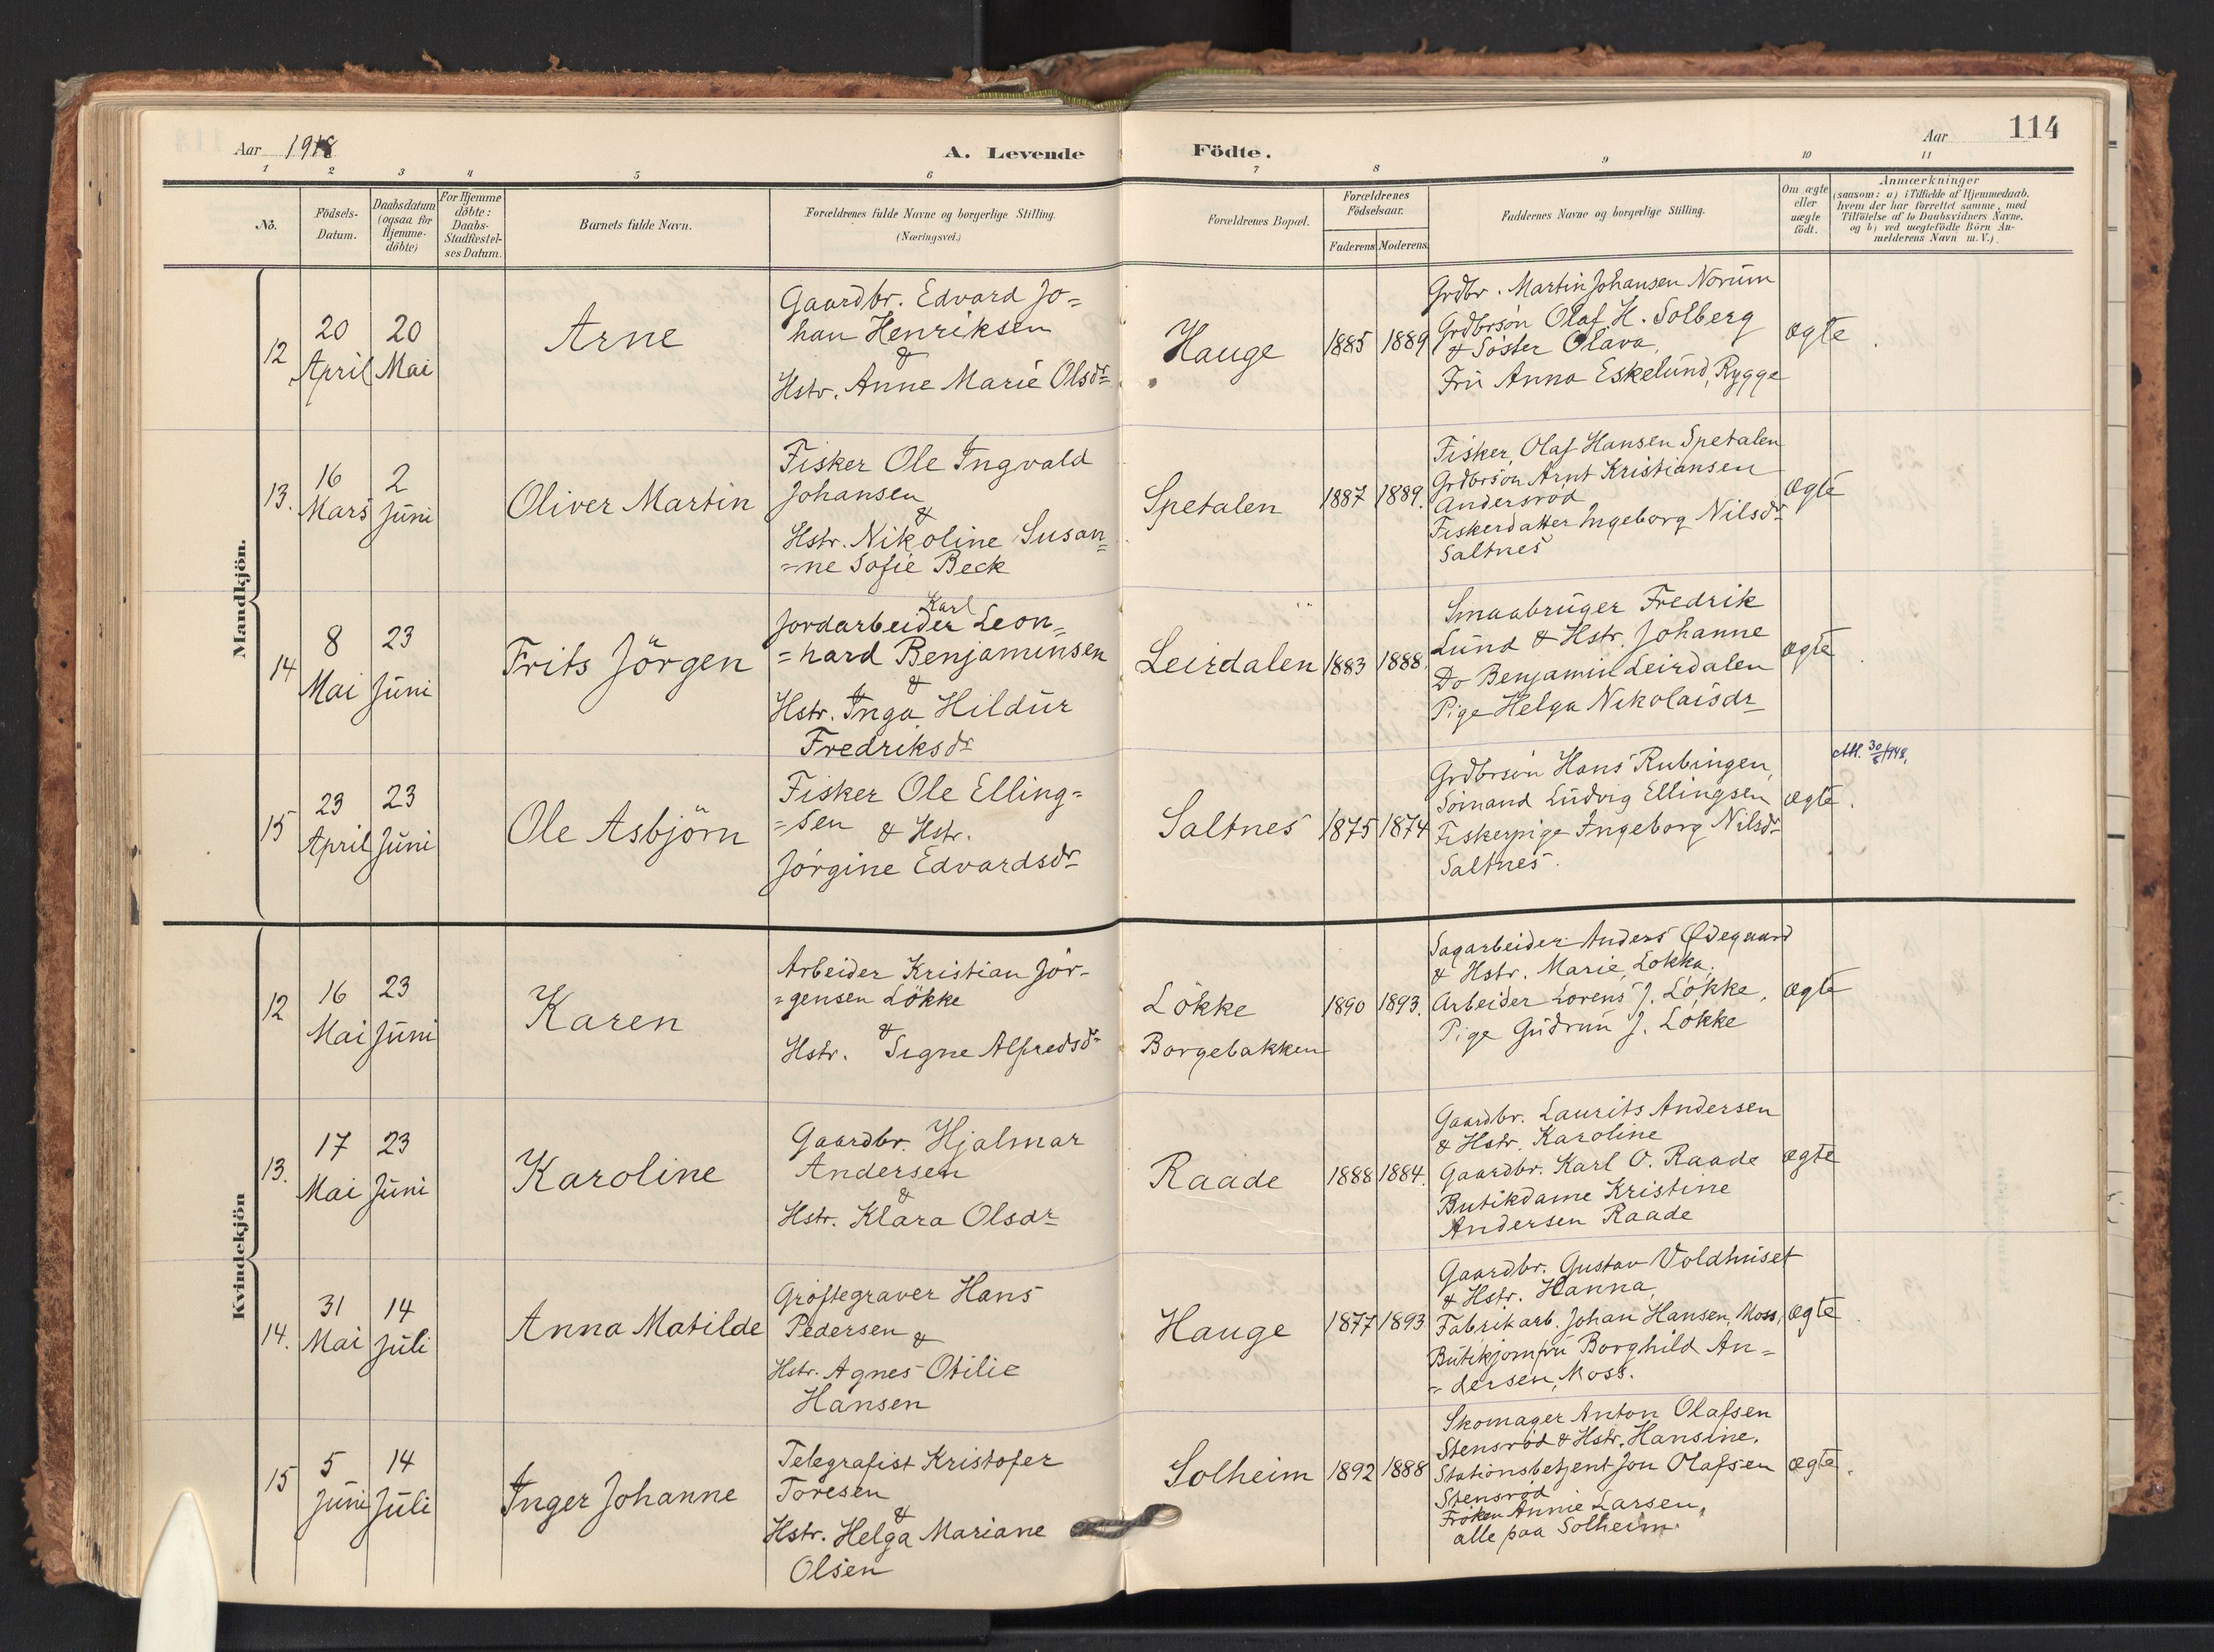 114
Aar 1918
A. Levende Födte.
Aar
1 2 3 4 5 6 7 8 9 10 11
No.
Födsels-
Datum.
Daabsdatum
(ogsaa for
Hjemme-
döbte)
For Hjemme
döbte:
Daabs-
Stadfæstel-
ses Datum.
Barnets fulde Navn.
Forældrenes fulde Navne og borgerlige Stilling.
(Næringsvei.)
Forældrenes Bopæl.
Forældrenes
Födselsaar.
Faderens Moderens
Faddernes Navne og borgerlige Stilling.
Om ægte
eller
uægte
födt.
Anmærkninger
(saasom: a) i Tilfælde af Hjemmedaab,
hvem der har forrettet samme, med
Tilföielse af to Daabsvidners Navne,
og b) ved uægtefödte Börn An-
melderens Navn m. V.).
Mandkjön.
12
20
April
20
Mai
Arne
Gaardbr. Edvard Jo=
han Henriksen
&
Hstr. Anne Marie Olsdr
Hauge
1885 1889
Grdbr. Martin Johansen Norum
Grdbrsön Olaf H. Solberg
& Söster Olava,
Fru Anna Eskelund, Rygge
ægte
13.
16
Mars
2
Juni
Oliver Martin
Fisker Ole Ingvald
Johansen
&
Hstr. Nikoline Susan=
=ne Sofie Beck
Spetalen
1887 1889.
Fisker Olaf Hansen Spetalen
Grdbrsön Arnt Kristiansen
Andersröd
Fiskerdatter Ingeborg Nilsdr
Saltnes
ægte
14
8
Mai
23
Juni
Frits Jörgen
Karl
Jordarbeider Leon=
=hard Benjaminsen
&
Hstr. Inga Hildur
Fredriksdr
Leirdalen
1883 1888.
Smaabruger Fredrik
Lund & Hstr. Johanne
Do Benjamin Leirdalen
Pige Helga Nikolaisdr
ægte
15
23
April
23
Juni
Ole Asbjörn
Fisker Ole Elling=
=sen & Hstr.
Jörgine Edvardsdr
Saltnes
1875 1874
Grdbrsön Hans Rubingen,
Sömand Ludvig Ellingsen
Fiskerpige Ingeborg Nilsdr
Saltnes.
ægte.
Kvindekjön
12
16
Mai
23
Juni
Karen
Arbeider Kristian Jör-
=gensen Lökke
&
Hstr. Signe Alfredsdr
Lökke
Borgebakken
1890 1893.
Sagarbeider Anders Ødegaard
& Hstr. Marie, Lökka,
Arbeider Lorens J. Lökke,
Pige Gudrun J. Lökke
ægte
13.
17
Mai
23
Juni
Karoline
Gaardbr. Hjalmar
Andersen
&
Hstr. Klara Olsdr
Raade
1888 1884.
Gaardbr. Laurits Andersen
& Hstr. Karoline
Gaardbr. Karl O. Raade
Butikdame Kristine
Andersen Raade
ægte
14.
31
Mai
14
Juli
Anna Matilde
Gröftegraver Hans
Pedersen &
Hstr. Agnes Otilie
Hansen
Hauge
1877 1893
Gaardbr. Gustav Voldhuset
& Hstr. Hanna,
Fabrikarb. Johan Hansen, Moss,
Butikjomfru Borghild An=
=dersen, Moss.
ægte
15
5
Juni
14
Juli
Inger Johanne
Telegrafist Kristofer
Toresen
&
Hstr. Helga Mariane
Olsen
Solheim
1892 1888
Skomager Anton Olafsen
Stensröd & Hstr. Hansine.
Stationsbetjent Jon Olafsen
Stensröd
Fröken Annie Larsen,
alle paa Solheim.
ægte.